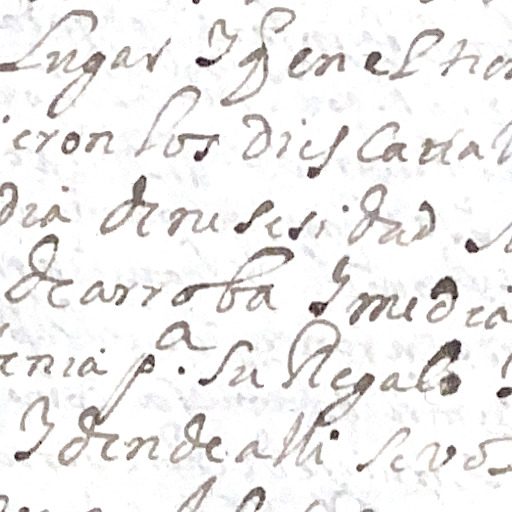 Lugar Y q̃ en el tien
ieron los dies Caval
dia de nesesidad su
de arroba Y media
tenia p.ª su Regalo Y
Y dende alli se vo